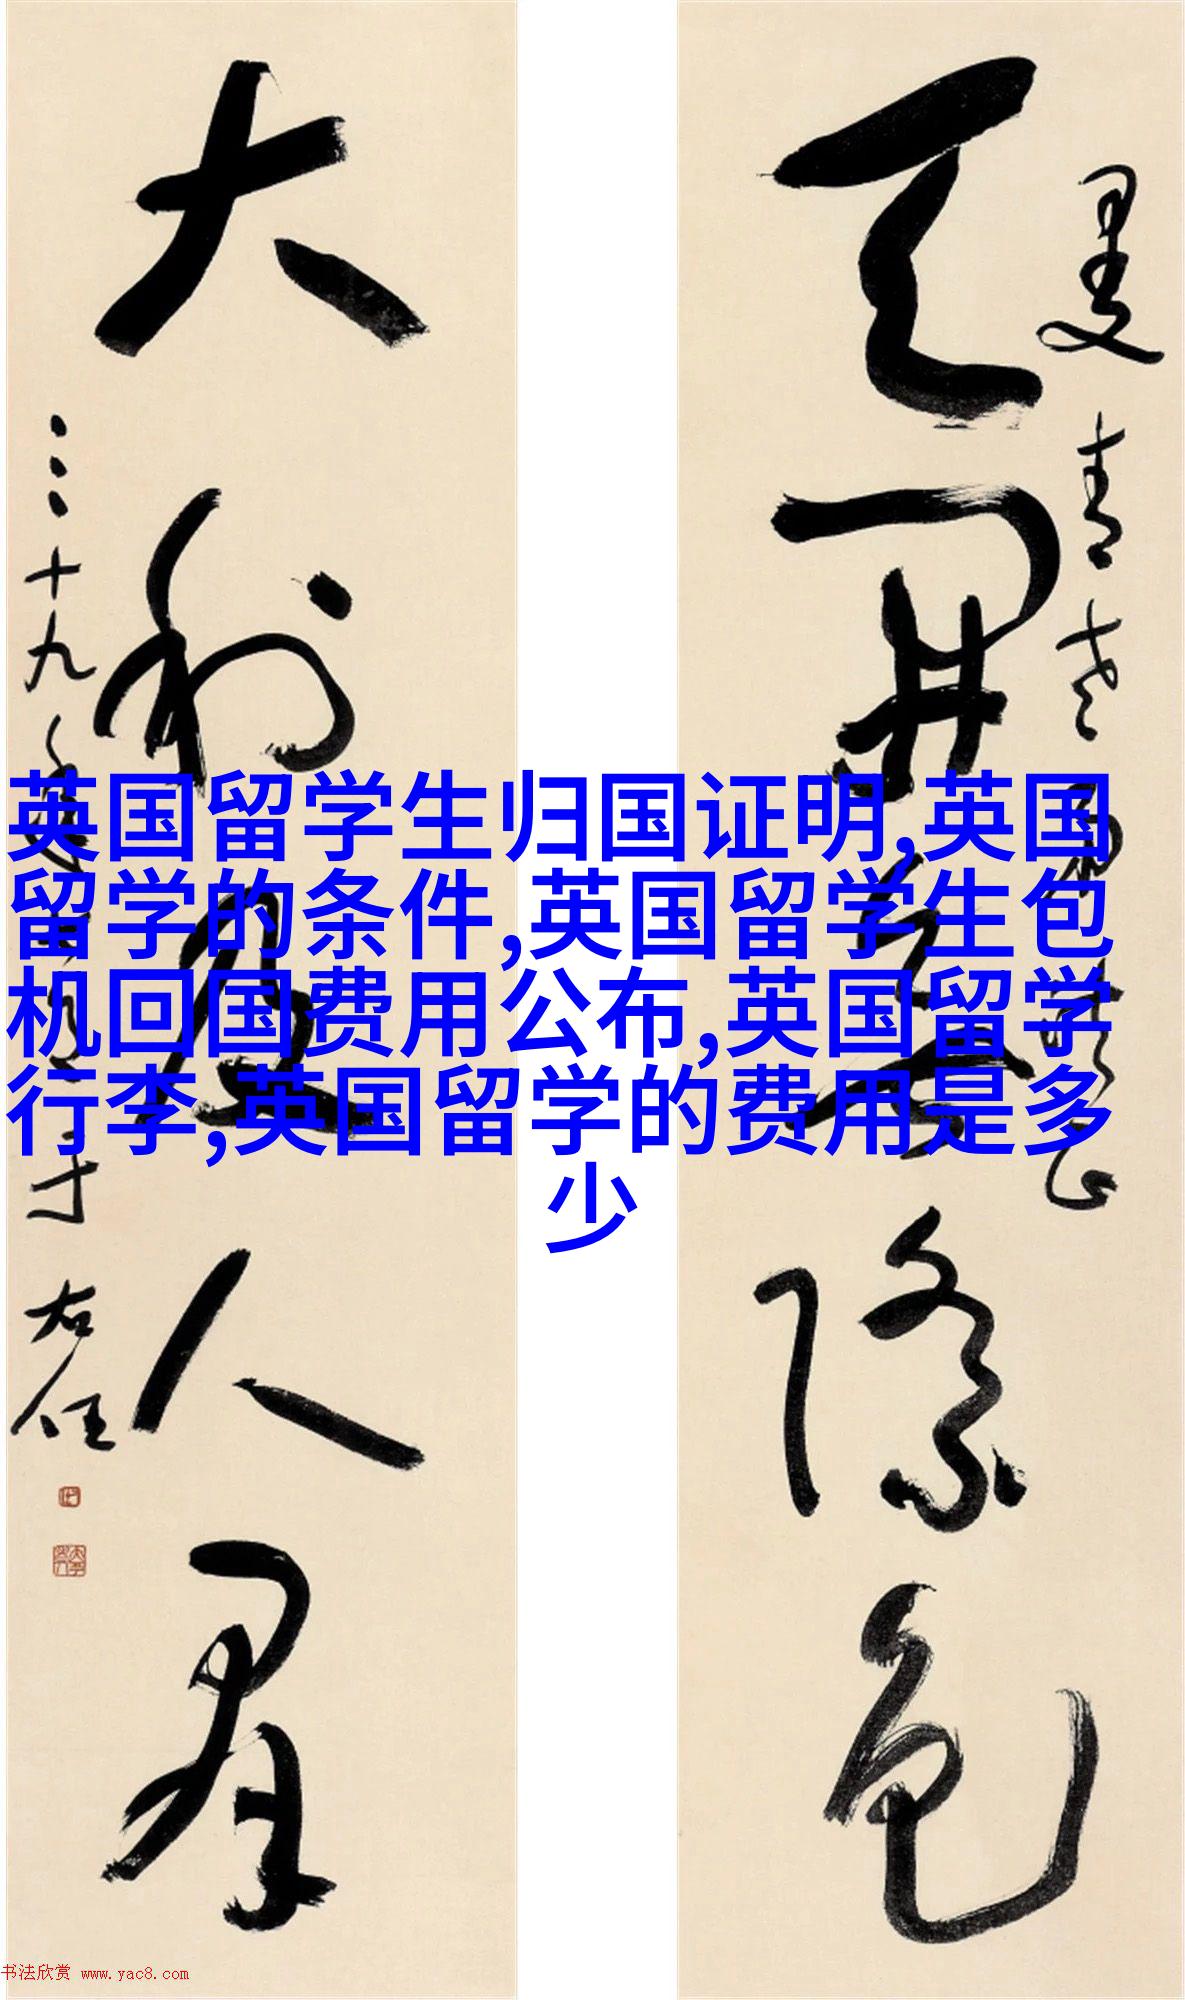 英国留学生归国证明,英国
留学的条件,英国留学生包
机回国费用公布,英国留学
行李,英国留学的费用是多
少
天開際色
大利及人群
三十九年
右任
书法欣赏 www.yac8.com